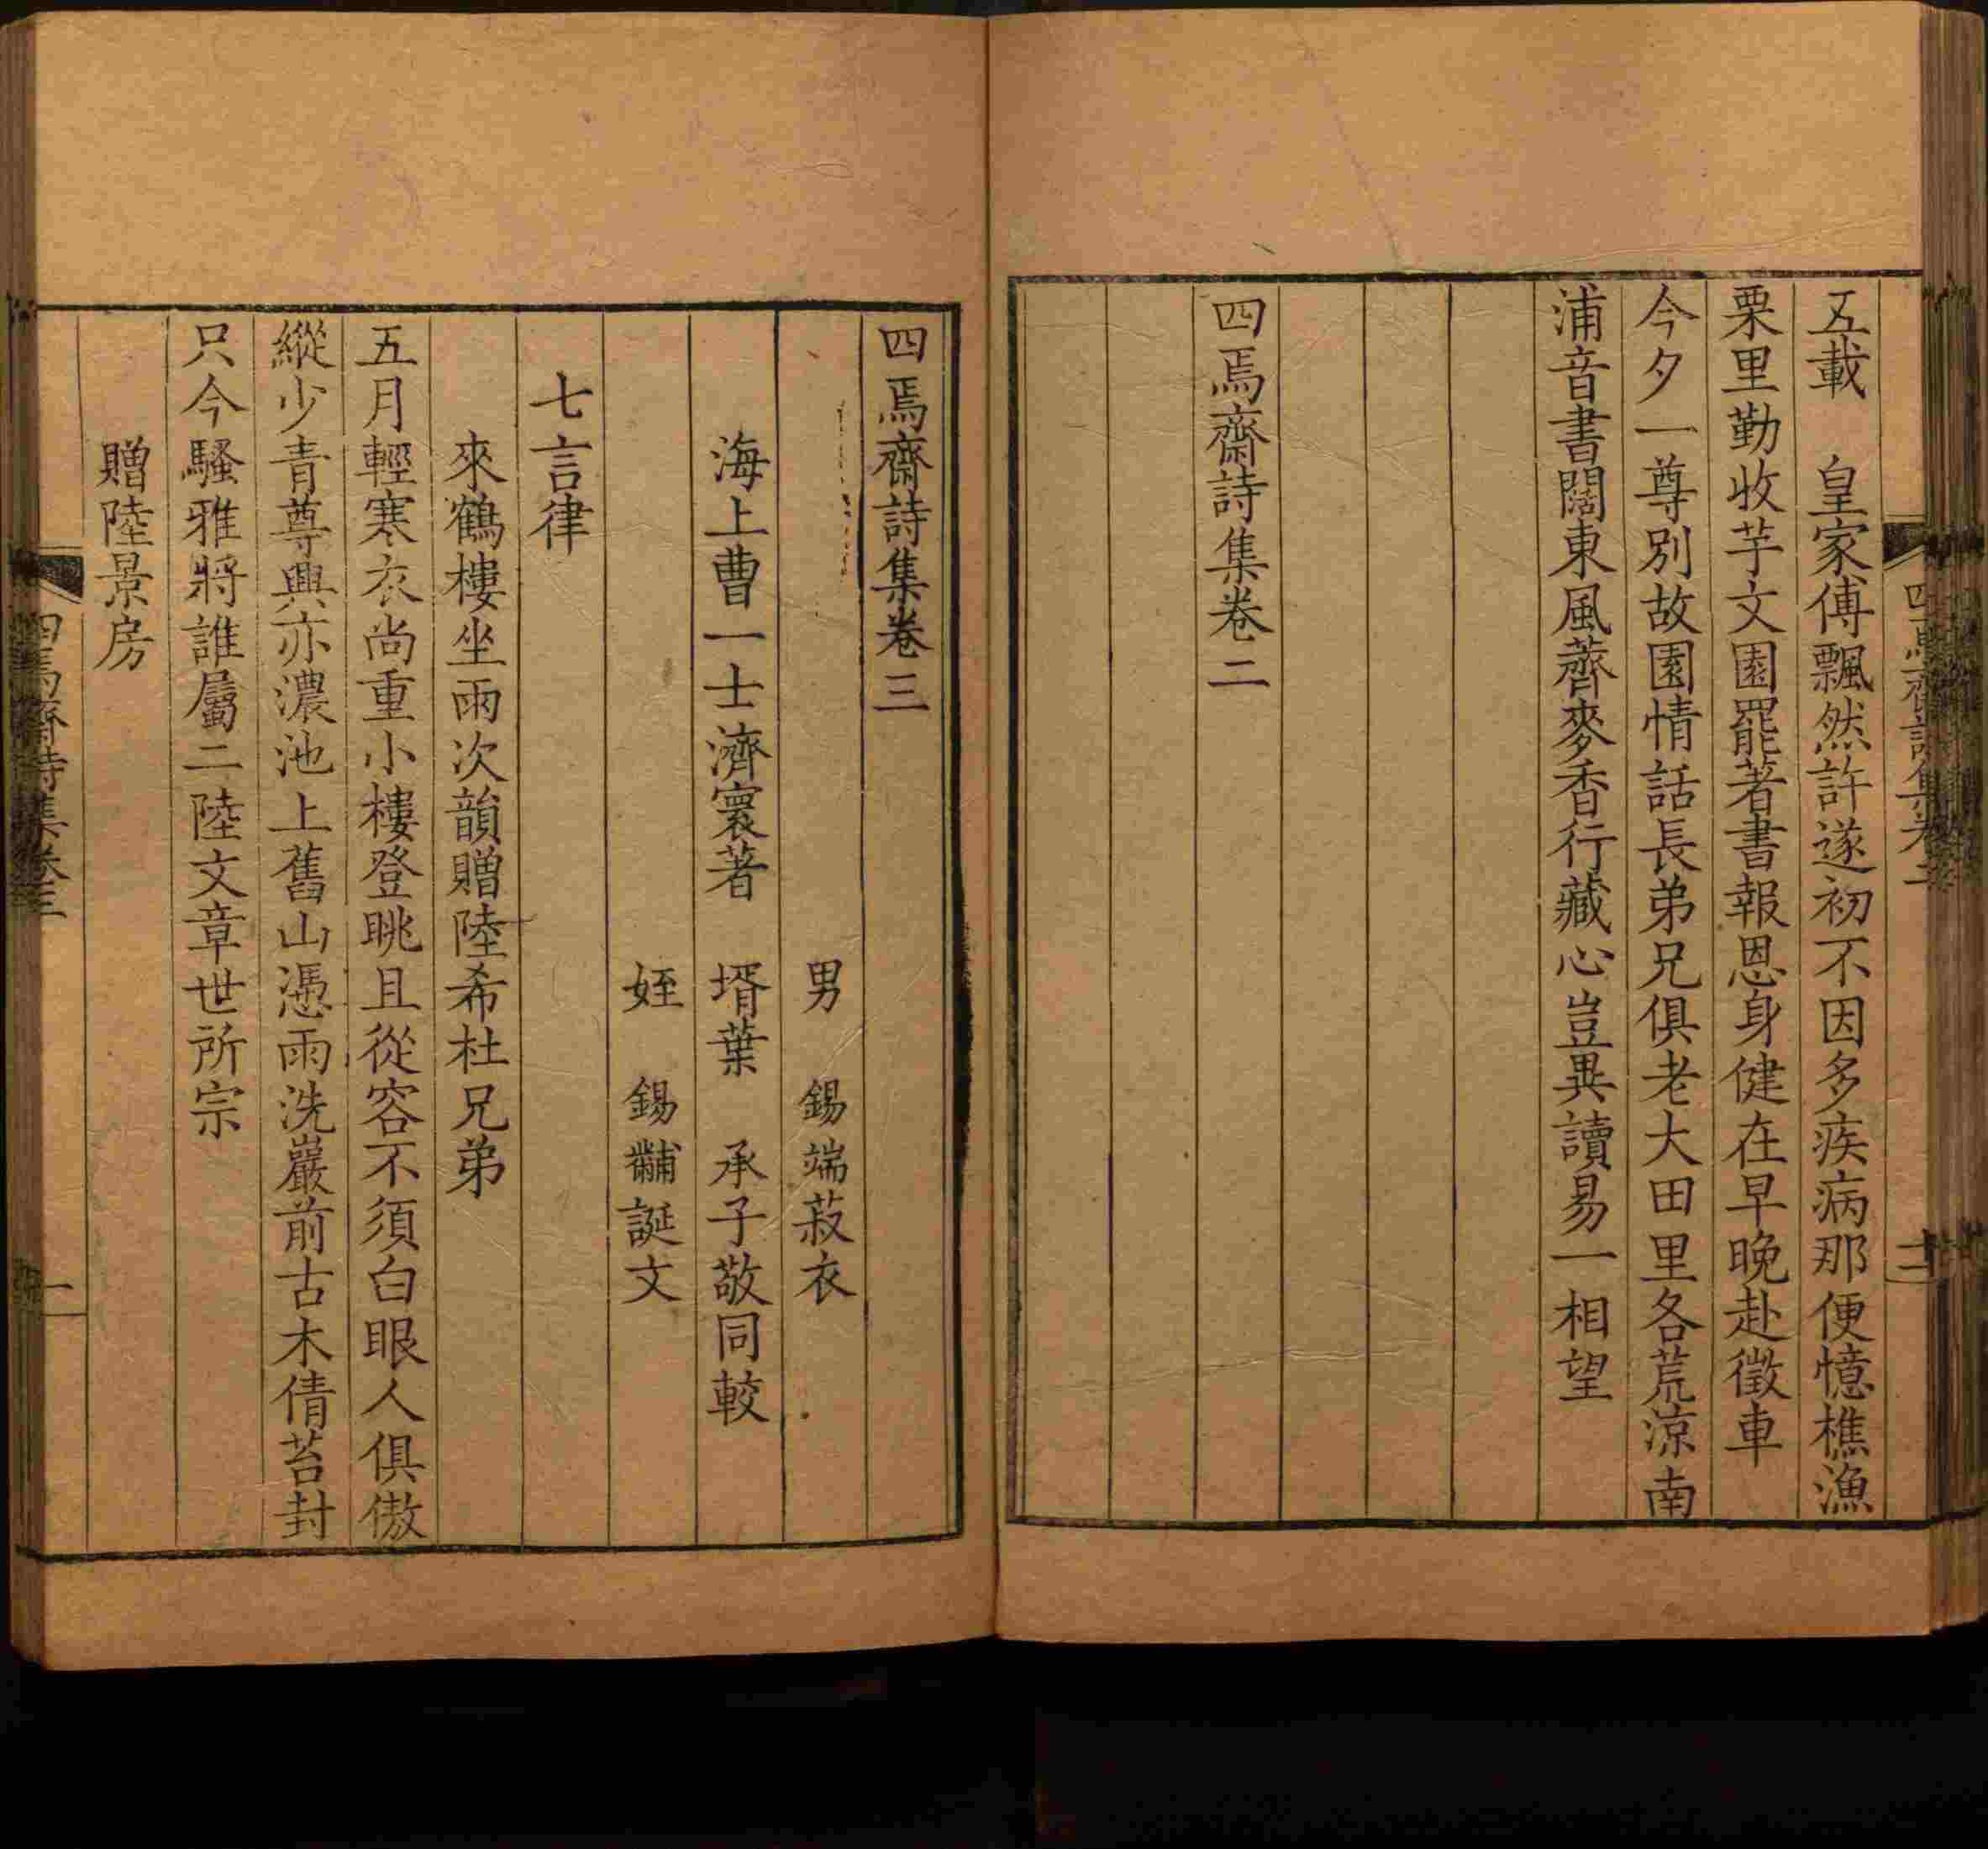 五載　皇家傅飄然許遂初不因多疾病那便憶樵漁
栗里勤收芋文園罷著書報恩身健在早晚赴徵車
今夕一尊別故園情話長弟兄俱老大田里各荒涼南
浦音書闊東風薺麥香行藏心豈異讀易一相望
四焉齋詩集卷二
四焉齋詩集卷二
四焉齋詩集卷三
男　錫端菽衣
海上曹一士濟寰著　壻葉　承子敬同較
姪　錫黼誕文
七言律
來鶴樓坐雨次韻贈陸希杜兄弟
五月輕寒衣尚重小樓登眺且從容不須白眼人俱傲
縱少青尊興亦濃池上舊山憑雨洗巖前古木倩苔封
只今騷雅將誰屬二陸文章世所宗
贈陸景房
四焉齋詩集卷三
一